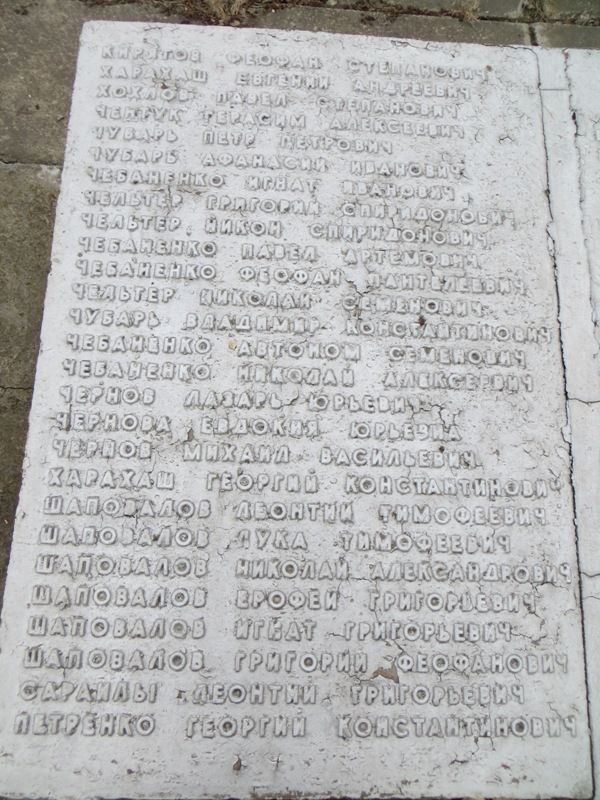 КИРЯТОВ ФЕОФАН СТЕПАНОВИЧ
ХАРАХАШ ЕВГЕНИЙ АНДРЕЕВИЧ
ХОХЛОВ ПАВЕЛ СТЕПАНОВИЧ
ЧЕНТУК ГЕРАСИМ АЛЕКСЕЕВИЧ
ЧУБАРЬ ПЕТР ПЕТРОВИЧ
ЧУБАРЬ АФАНАСИЙ ИВАНОВИЧ
ЧЕБАНЕНКО ИГНАТ ИВАНОВИЧ
ЧЕЛЬТЕР ГРИГОРИЙ СПИРИДОНОВИЧ
ЧЕЛЬТЕР НИКОН СПИРИДОНОВИЧ
ЧЕБАНЕНКО ПАВЕЛ АРТЕМОВИЧ
ЧЕБАНЕНКО ФЕОФАН ПАНТЕЛЕЕВИЧ
ЧЕЛЬТЕР НИКОЛАЙ СЕМЕНОВИЧ
ЧУБАРЬ ВЛАДИМИР КОНСТАНТИНОВИЧ
ЧЕБАНЕНКО АВТОНОМ СЕМЕНОВИЧ
ЧЕБАНЕНКО НИКОЛАЙ АЛЕКСЕЕВИЧ
ЧЕРНОВ ЛАЗАРЬ ЮРЬЕВИЧ
ЧЕРНОВА ЕВДОКИЯ ЮРЬЕВНА
ЧЕРНОВ МИХАИЛ ВАСИЛЬЕВИЧ
ХАРАХАШ ГЕОРГИЙ КОНСТАНТИНОВИЧ
ШАПОВАЛОВ ЛЕОНТИЙ ТИМОФЕЕВИЧ
ШАПОВАЛОВ ЛУКА ТИМОФЕЕВИЧ
ШАПОВАЛОВ НИКОЛАЙ АЛЕКСАНДРОВИЧ
ШАПОВАЛОВ ЕРОФЕЙ ГРИГОРЬЕВИЧ
ШАПОВАЛОВ ИГНАТ ГРИГОРЬЕВИЧ
ШАПОВАЛОВ ГРИГОРИЙ ФЕОФАНОВИЧ
САРАИЛЫ ЛЕОНТИЙ ГРИГОРЬЕВИЧ
ПЕТРЕНКО ГЕОРГИЙ КОНСТАНТИНОВИЧ